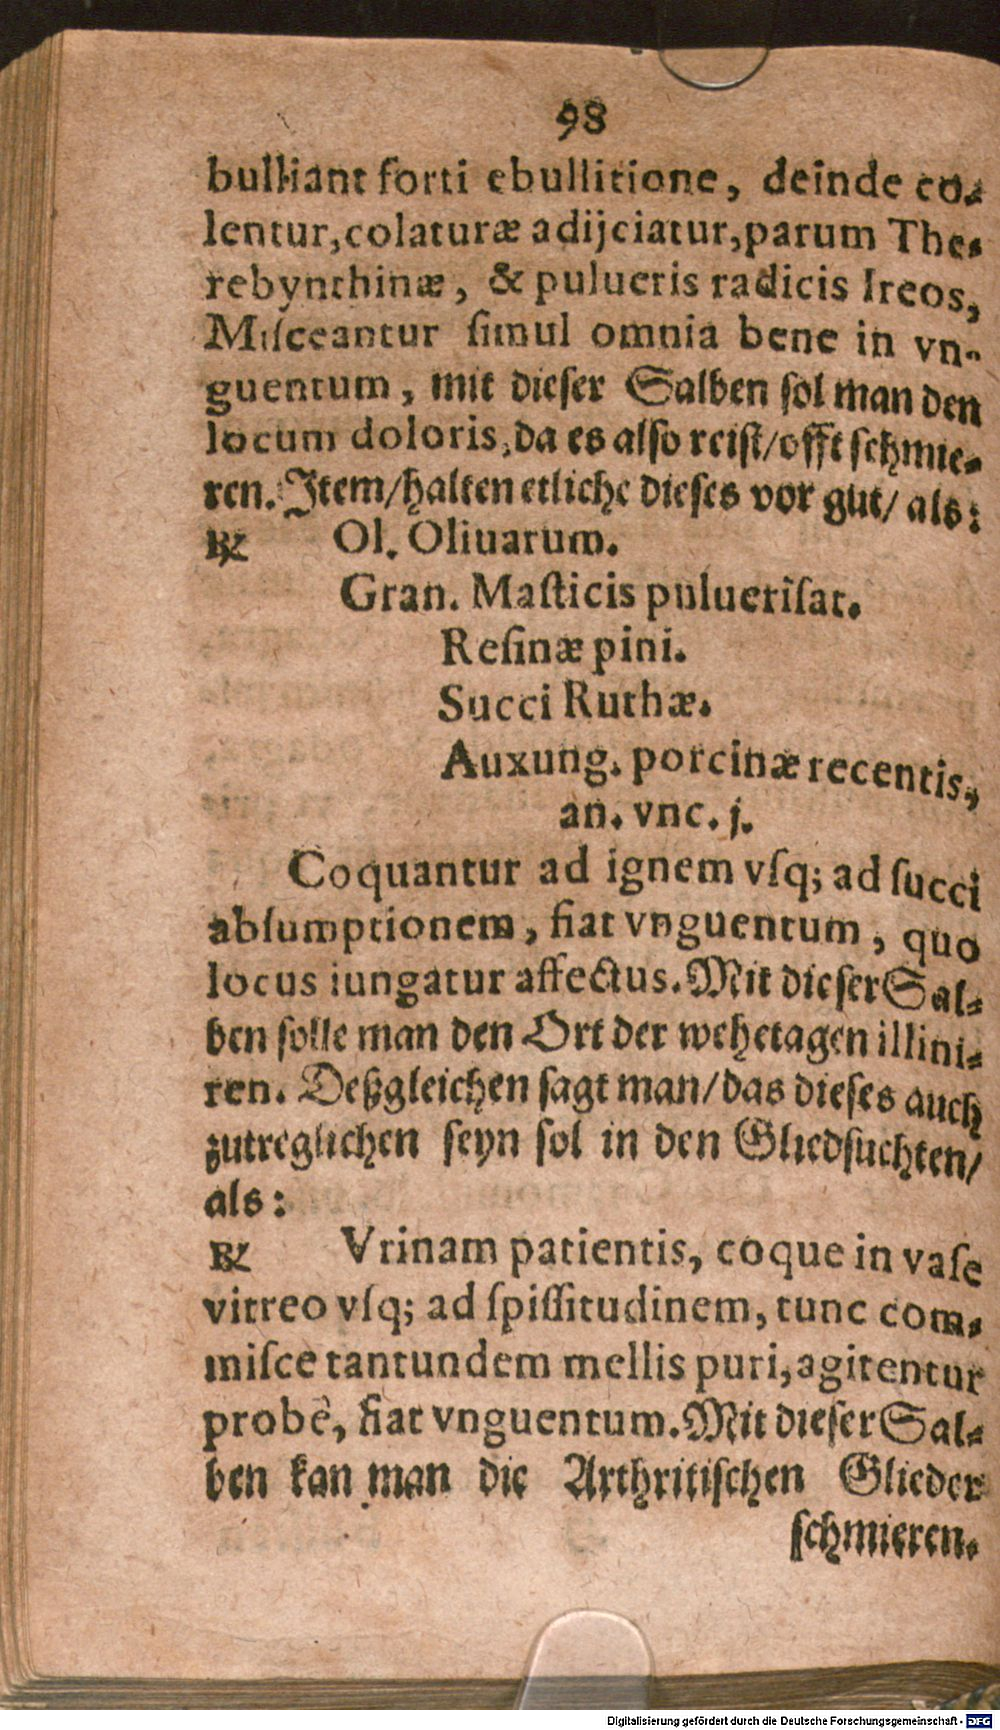 98
bulliant forti ebullitione, deinde co⸗
lentur, colaturæ adijciatur, parum The⸗
rebynthinæ, & pulueris radicis Ireos,
Miſceantur ſimul omnia bene in vn⸗
guentum, mit dieſer Salben ſol man den
locum doloris, da es alſo reiſt/ offt ſchmie⸗
ren. Item/ halten etliche dieſes vor gut/ als:
℞ Ol. Oliuarum.
Gran. Maſticis pulueriſat.
Reſinæ pini.
Succi Ruthæ.
Auxung. porcinæ recentis,
an. vnc. j.
Coquantur ad ignem vſq; ad ſucci
abſumptionem, fiat vnguentum, quo
locus iungatur affectus. Mit dieſer Sal⸗
ben ſolle man den Ort der wehetagen illini⸗
ren. Deßgleichen ſagt man/ das dieſes auch
zutreglichen ſeyn ſol in den Gliedſuchten/
als:
℞ Vrinam patientis, coque in vaſe
vitreo vſq; ad ſpiſſitudinem, tunc com⸗
miſce tantundem mellis puri, agitentur
probè, fiat vnguentum. Mit dieſer Sal⸗
ben kan man die Arthritiſchen Glieder
ſchmieren.
Digitalisierung gefördert durch die Deutsche Forschungsgemeinschaft - DFG